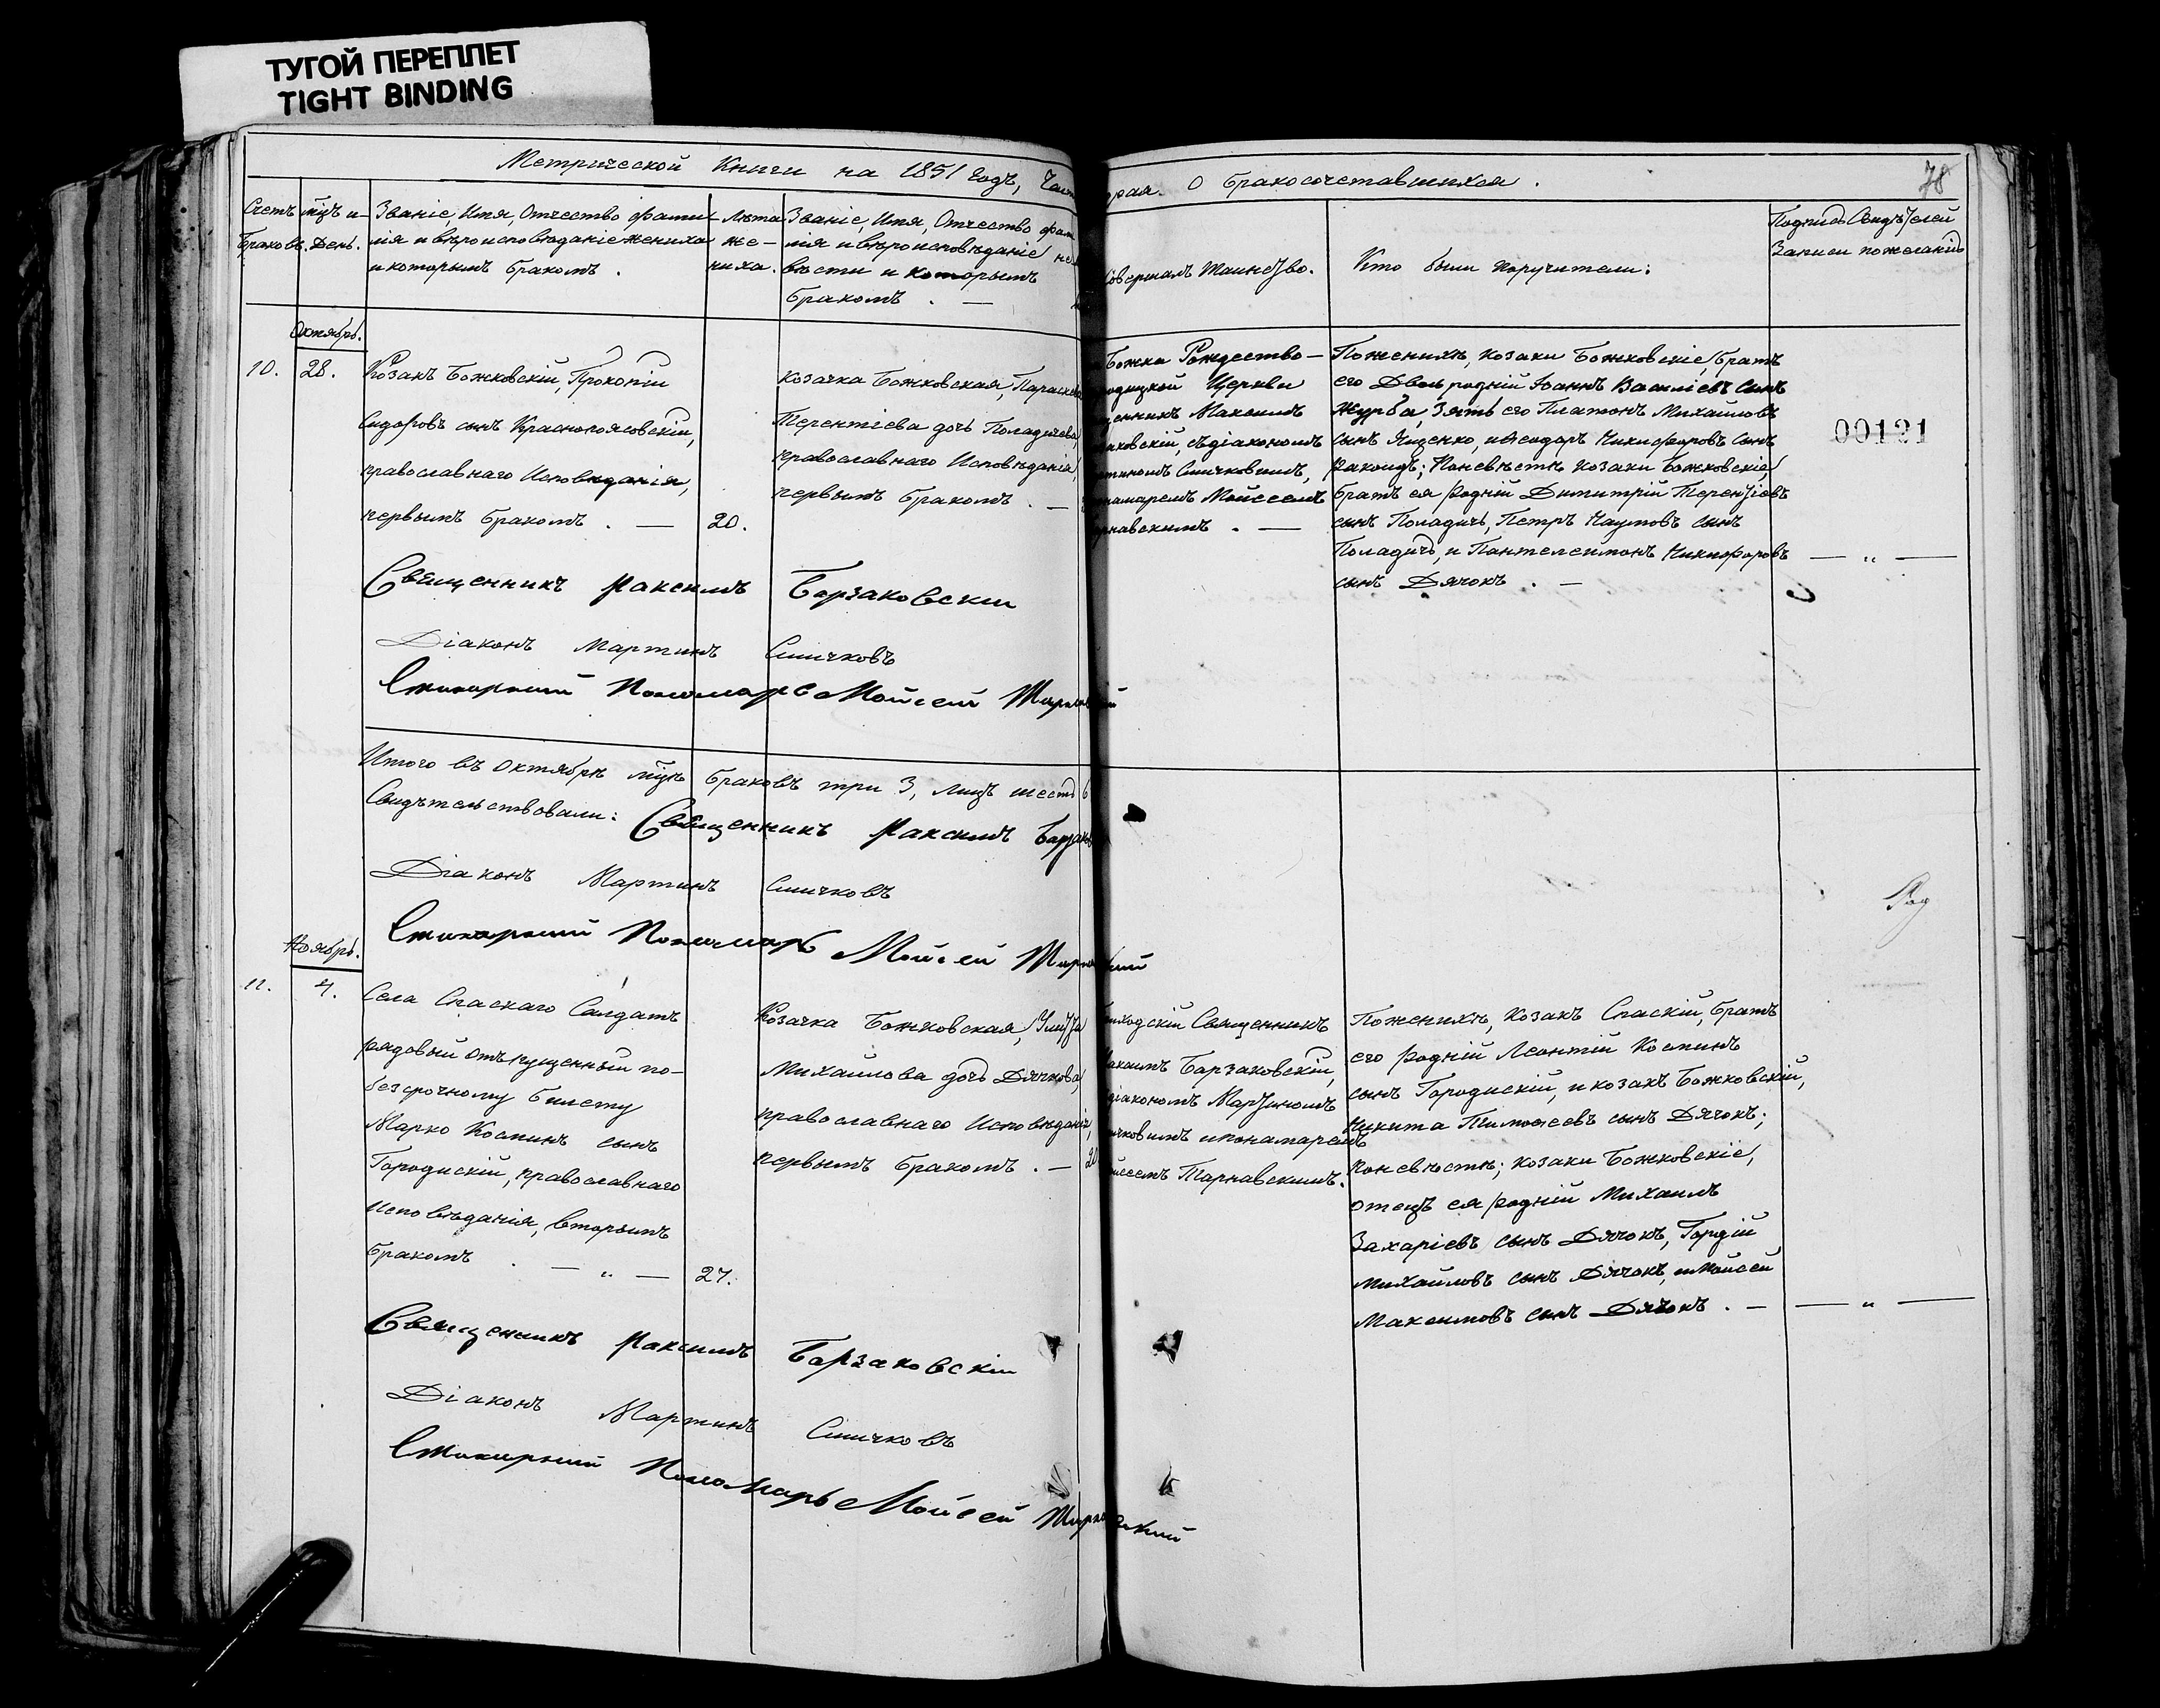 ТУГОЙ ПЕРЕПЛЕТ
TIGHT BINDING
Метрической Книги на 1851 годъ, Час
рая. О бракосочетавшихся.
78
Счетъ Браковъ.
мц̃ъ и День.
Званіе, Имя, Отчество фами
лія и вѣроисповѣданіе жениха
и которымъ бракомъ.
Лѣта
же-
ниха.
Званіе, Имя, Отчество фам
лія и вѣроисповѣданіе не
вѣсти и которымъ
бракомъ. —
Совершалъ Таинство.
Кто были поручители:
Подпись Свидѣтелей
Записи по желанію
Октябрь.
10.
28.
Козакъ Божковскій, Прокопій
Сидоровъ сынъ Краснопоясовскій,
православнаго Исповѣданія,
первымъ бракомъ. —
20.
Козачка Божковская, Параскева
Терентіева дочь Поладичева,
православнаго Исповѣданія,
первымъ бракомъ. —
Божка Рождество-
родицкой Церкви
щенникъ Максимъ
заковскій, съ діакономъ
ртиномъ Синичковимъ,
намаремъ Мойсеемъ
рнавскимъ. —
По женихѣ, козаки Божковскіе, братъ
его Двоюродній Іоаннъ Василіевъ Сынъ
Журба, Зять его Платонъ Михаиловъ
сынъ Яценко, и Ѳеодоръ Никифоровъ Сынъ
; По невѣстѣ козаки Божковскіе,
братъ ея родній Димитрій Терентіевъ
сынъ Поладичъ, Петръ Наумовъ сынъ
Поладичъ, и Пантелеимонъ Никифоровъ
сынъ Дячокъ. —
— „ —
00121
Священникъ Максимъ Барзаковскій
Діаконъ Мартинъ Синичковъ
Стихарний Пономарь Мойсей Тарнавскій
Итого въ Октябрѣ мц̃ѣ браковъ три 3, лицъ шесть 6
Свидѣтельствовали: Священникъ Максимъ Барзаков
Діаконъ Мартинъ Синичковъ
Стихарний Пономарь Мойсей Тарнавский
Ноябрь.
11.
4.
Села Спаскаго Салдатъ
рядовый отъпущенный по-
безсрочному билету
Марко Косминъ сынъ
Городискій, православнаго
Исповѣданія, вторымъ
бракомъ. — „ —
27.
Козачка Божковская, Улита
Михаилова дочь Дячкова,
православнаго Исповѣданія,
первымъ бракомъ. —
20
риходскій Священникъ
Максимъ Барзаковскій,
діакономъ Мартиномъ
ичковимъ и понамаремъ
ойсеемъ Тарнавскимъ.
По женихѣ, Козакъ Спаскій, братъ
его родній Леонтій Косминъ
сынъ Городискій, и козакъ Божковскій,
Никита Тимоѳеевъ сынъ Дячокъ;
По невѣстѣ; козаки Божковскіе,
отецъ ея родній Михаилъ
Захаріевъ сынъ Дячокъ, Гордій
Михайловъ сынъ Дячокъ, и Мойсей
Максимовъ сынъ Дячокъ. —
— „ —
Священникъ Максимъ Барзаковскій
Діаконъ Мартинъ Синичковъ
Стихарний Пономарь Мойсей Тарнавский